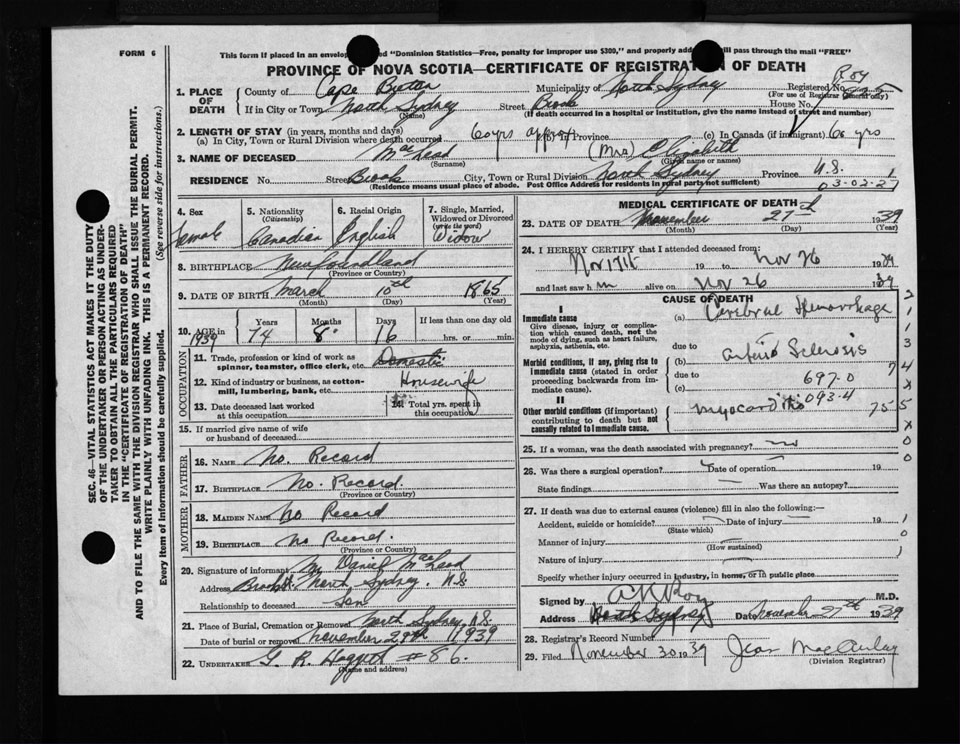 FORM 6
This form if placed in an envelope "Dominion Statistics—Free, penalty for improper use $300," and properly will pass through the mail "FREE"
PROVINCE OF NOVA SCOTIA—CERTIFICATE OF REGISTRATION OF DEATH
1. PLACE OF DEATH
County of Cape Breton Municipality of North Sydney Registered No.
(For use of Registrar General only)
If in City or Town North Sydney Street Brook House No.
(Name) (If death occurred in a hospital or institution, give the name instead of street and number)
2. LENGTH OF STAY (in years, months and days)
(a) In City, Town or Rural Division where death occurred 60 yrs approx (b) in Province (c) in Canada (if immigrant) 60 yrs
3. NAME OF DECEASED MacLeod (Mrs) Elizabeth
(Surname) (Given name or names)
RESIDENCE No. Street Brook City, Town or Rural Division North Sydney Province N.S.
(Residence means usual place of abode. Post Office Address for residents in rural parts not sufficient) 03-02-27
4. Sex Female
5. Nationality (Citizenship) Canadian
6. Racial Origin English
7. Single, Married, Widowed or Divorced (write the word) Widow
8. BIRTHPLACE Newfoundland
(Province or Country)
9. DATE OF BIRTH March 10th 1865
(Month) (Day) (Year)
10. AGE in 1939 Years 74 Months 8 Days 16 If less than one day old
hrs. or min.
OCCUPATION
11. Trade, profession or kind of work as spinner, teamster, office clerk, etc. Domestic
12. Kind of industry or business, as cotton-mill, lumbering, bank, etc. Housewife
13. Date deceased last worked at this occupation
14. Total yrs. spent in this occupation
15. If married give name of wife or husband of deceased
FATHER
16. NAME No. Record
17. BIRTHPLACE No. Record
(Province or Country)
MOTHER
18. MAIDEN NAME No Record
19. BIRTHPLACE No Record.
(Province or Country)
20. Signature of informant Mr Daniel MacLeod
Address Brook St. North Sydney. N.S
Relationship to deceased Son
21. Place of Burial, Cremation or Removal North Sydney N.S.
Date of burial or removal November 29th 1939
22. UNDERTAKER G. R. #86.
(Name and address)
MEDICAL CERTIFICATE OF DEATH
23. DATE OF DEATH November 27th 1939
(Month) (Day) (Year)
24. I HEREBY CERTIFY that I attended deceased from:
Nov 19 to Nov 26 1939
and last saw h alive on Nov 26 1939
CAUSE OF DEATH
I
Immediate cause
Give disease, injury or complication which caused death, not the mode of dying, such as heart failure, asphyxia, asthenia, etc.
(a) Cerebral Hemorrhage
due to
Morbid conditions, if any, giving rise to immediate cause (stated in order proceeding backwards from immediate cause).
(b) arterio Sclerosis
due to
(c) 697-0
093-4
II
Other morbid conditions (if important) contributing to death but not causally related to immediate cause.
myocarditis
25. If a woman, was the death associated with pregnancy? no
26. Was there a surgical operation? Date of operation 19
State findings Was there an autopsy?
27. If death was due to external causes (violence) fill in also the following:
Accident, suicide or homicide? Date of injury 19
(State which)
Manner of injury
(How sustained)
Nature of injury
Specify whether injury occurred in industry, in home, or in public place
Signed by A K Roy M.D.
Address North Sydney Date November 27th 1939
28. Registrar's Record Number
29. Filed November 30 1939 Jean MacAulay
(Division Registrar)
SEC. 46—VITAL STATISTICS ACT MAKES IT THE DUTY
OF THE UNDERTAKER OR PERSON ACTING AS UNDER-
TAKER TO OBTAIN ALL THE PARTICULARS REQUIRED
IN THE "CERTIFICATE OF REGISTRATION OF DEATH"
AND TO FILE THE SAME WITH THE DIVISION REGISTRAR WHO SHALL ISSUE THE BURIAL PERMIT.
WRITE PLAINLY WITH UNFADING INK. THIS IS A PERMANENT RECORD.
Every item of information should be carefully supplied. (See reverse side for instructions.)